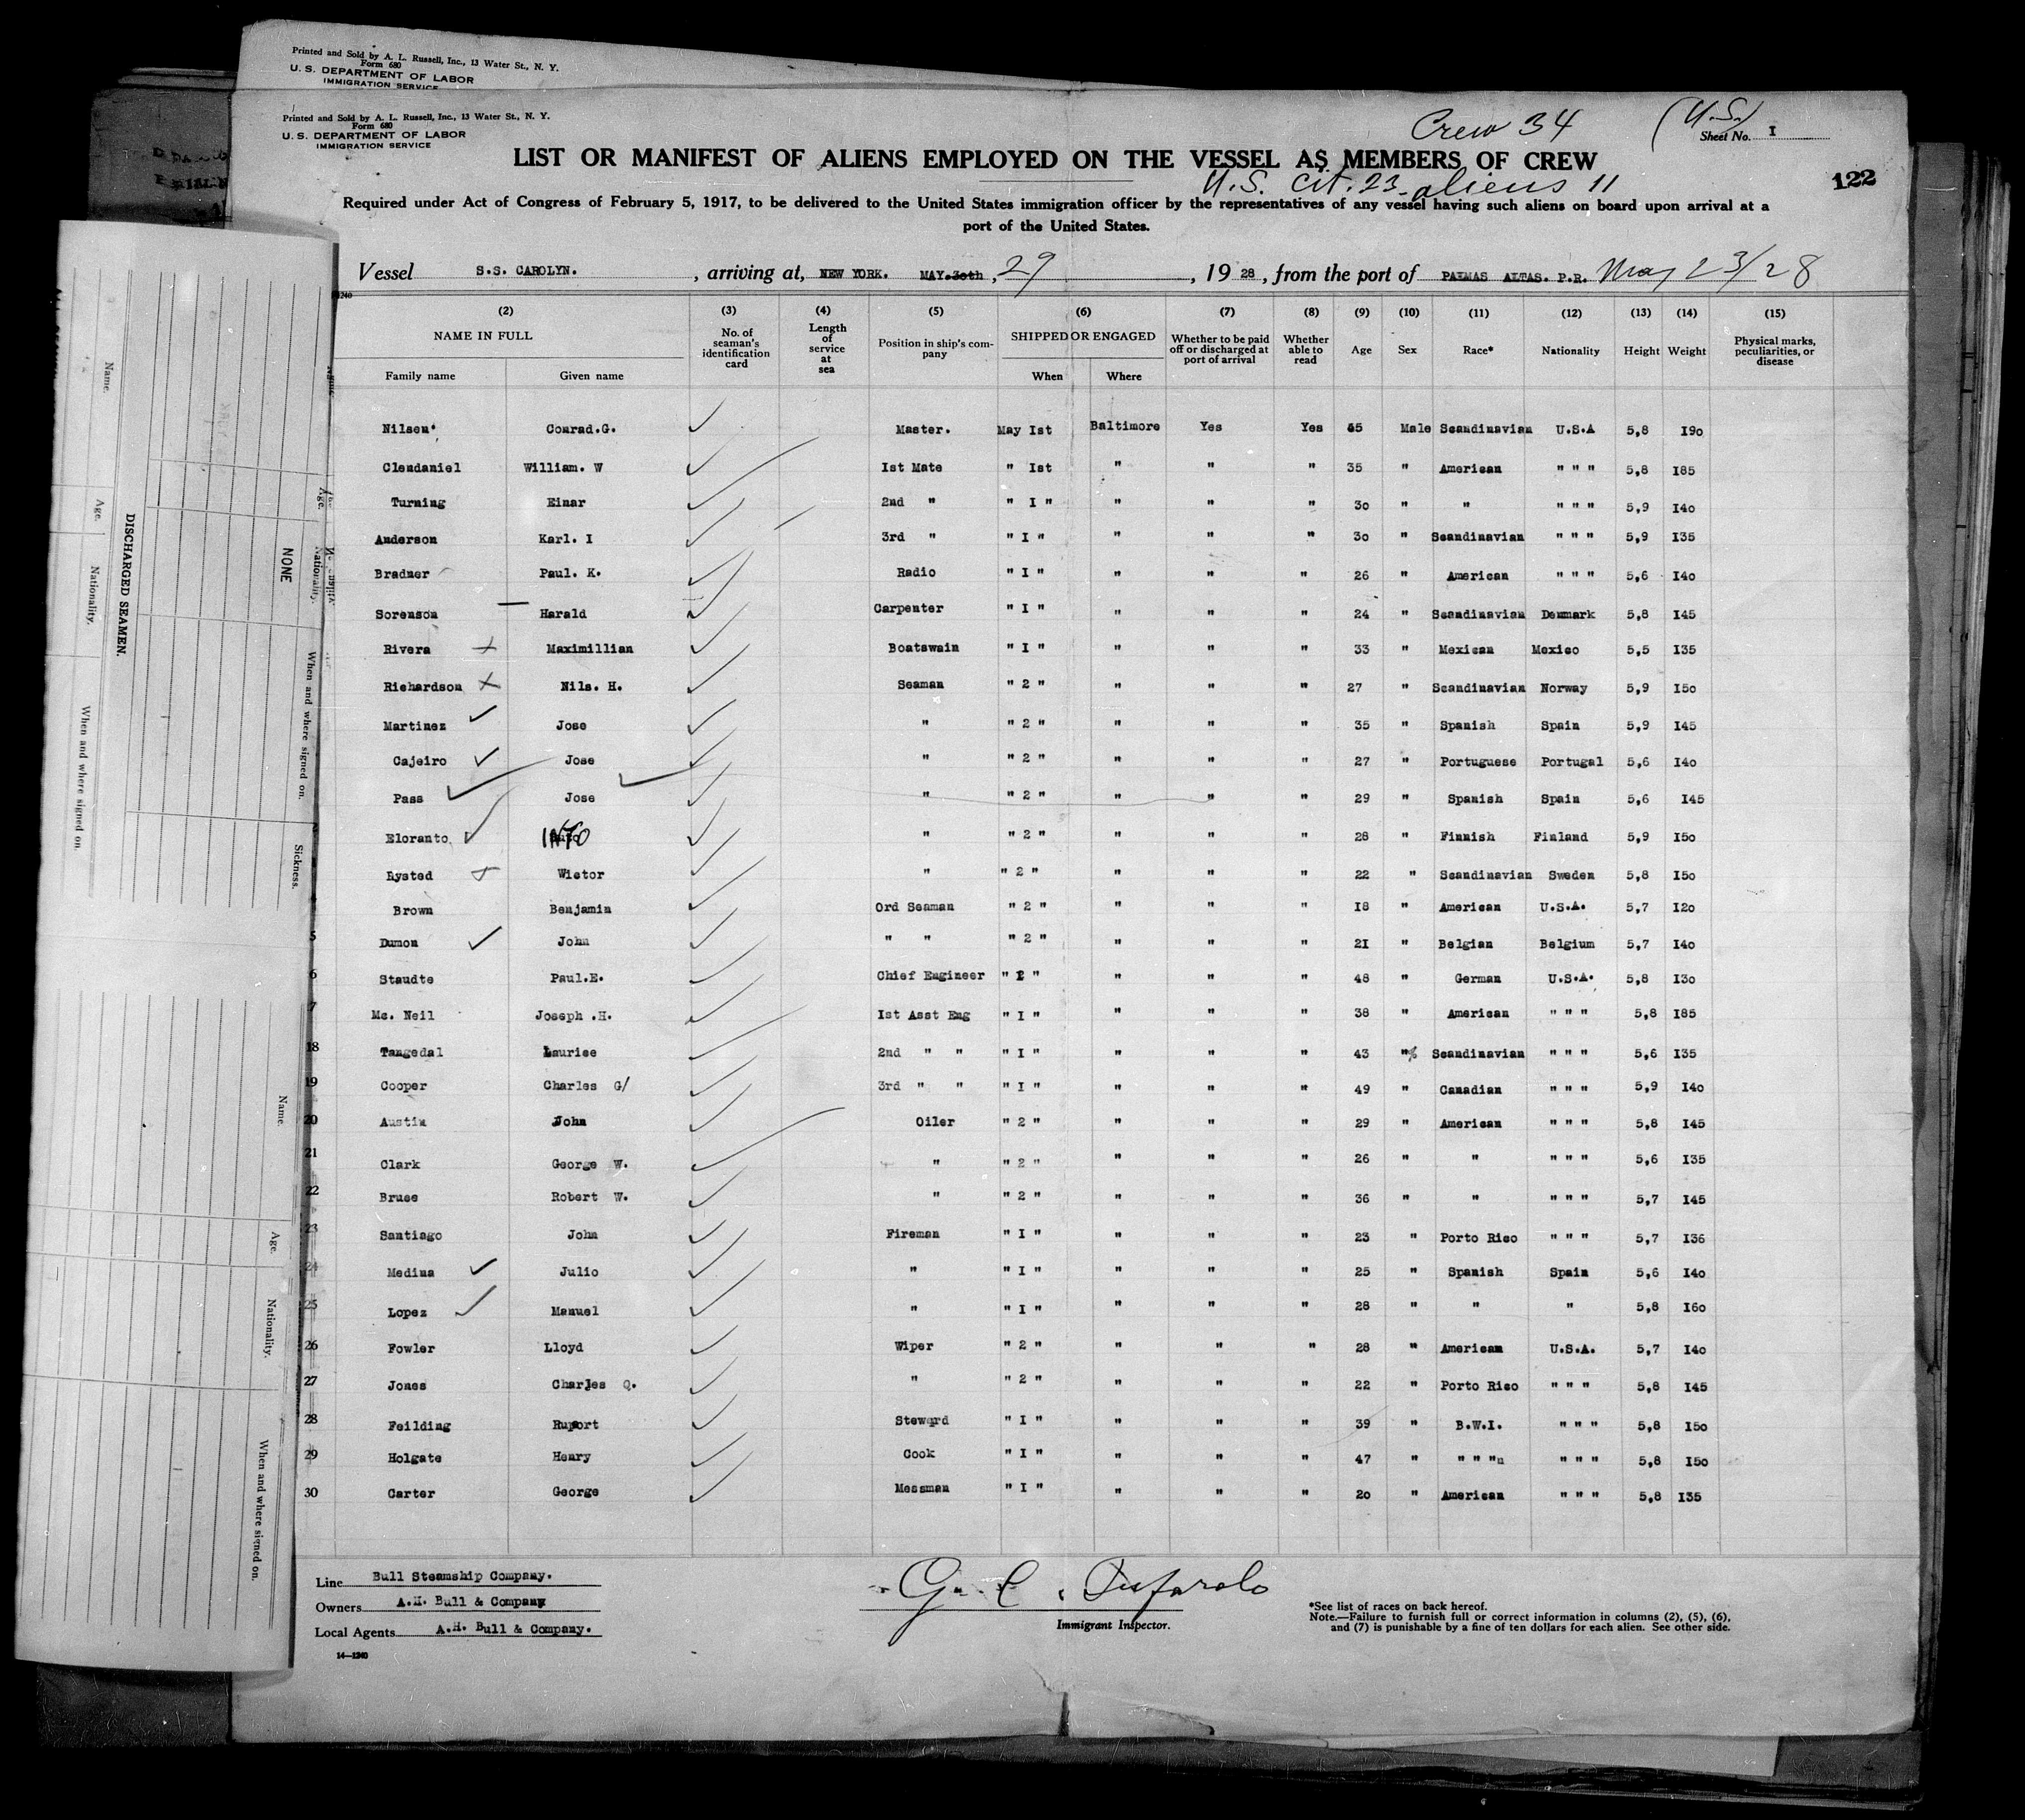 Printed and Sold by A. L. Russell, Inc., 13 Water St., N. Y.
Form 680
U. S. DEPARTMENT OF LABOR
IMMIGRATION SERVICE
Printed and Sold by A. L. Russell, Inc., 13 Water St., N. Y.
Form 680
U. S. DEPARTMENT OF LABOR
IMMIGRATION SERVICE
Crew 34 (U.S.)
Sheet No. I
LIST OR MANIFEST OF ALIENS EMPLOYED ON THE VESSEL AS MEMBERS OF CREW
U.S. cit. 23 - aliens 11
122
Required under Act of Congress of February 5, 1917, to be delivered to the United States immigration officer by the representatives of any vessel having such aliens on board upon arrival at a
port of the United States.
Vessel S.S. CAROLYN. , arriving at, NEW YORK. MAY.30th , 29 , 19 28 , from the port of PALMAS ALTAS. P.R. May 23/28
(2) (3) (4) (5) (6) (7) (8) (9) (10) (11) (12) (13) (14) (15)
NAME IN FULL No. of seaman's identification card Length of service at sea Position in ship's company SHIPPED OR ENGAGED Whether to be paid off or discharged at port of arrival Whether able to read Age Sex Race* Nationality Height Weight Physical marks, peculiarities, or disease
Family name Given name When Where
Nilsen Conrad.G. Master. May Ist Baltimore Yes Yes 45 Male Scandinavian U.S.A 5,8 I90
Clendaniel William. W Ist Mate " Ist " " " 35 " American " " " 5,8 I85
Turning Einar 2nd " " I " " " " 30 " " " " " 5,9 I40
Anderson Karl. I 3rd " " I " " " " 30 " Scandinavian " " " 5,9 I35
Bradner Paul. K. Radio " I " " " " 26 " American " " " 5,6 I40
Sorenson Harald Carpenter " I " " " " 24 " Scandinavian Denmark 5,8 I45
Rivera Maximillian Boatswain " I " " " " 33 " Mexican Mexico 5,5 I35
Richardson Nils. H. Seaman " 2 " " " " 27 " Scandinavian Norway 5,9 I50
Martinez Jose " " 2 " " " " 35 " Spanish Spain 5,9 I45
Cajeiro Jose " " 2 " " " " 27 " Portuguese Portugal 5,6 I40
Pass Jose " " 2 " " " " 29 " Spanish Spain 5,6 I45
Eloranto INTO " " 2 " " " " 28 " Finnish Finland 5,9 I50
Rysted Wictor " " 2 " " " " 22 " Scandinavian Sweden 5,8 I50
Brown Benjamin Ord Seaman " 2 " " " " I8 " American U.S.A. 5,7 I20
5 Dumon John " " " 2 " " " " 2I " Belgian Belgium 5,7 I40
6 Staudte Paul.E. Chief Engineer " 2 " " " " 48 " German U.S.A. 5,8 I30
7 Mc. Neil Joseph .H. Ist Asst Eng " I " " " " 38 " American " " " 5,8 I85
18 Tangedal Laurice 2nd " " " I " " " " 43 " Scandinavian " " " 5,6 I35
19 Cooper Charles G/ 3rd " " " I " " " " 49 " Canadian " " " 5,9 I40
20 Austin John Oiler " 2 " " " " 29 " American " " " 5,8 I45
21 Clark George W. " " 2 " " " " 26 " " " " " 5,6 I35
22 Bruse Robert W. " " 2 " " " " 36 " " " " " 5,7 I45
23 Santiago John Fireman " I " " " " 23 " Porto Rico " " " 5,7 I36
24 Medina Julio " " I " " " " 25 " Spanish Spain 5,6 I40
25 Lopez Manuel " " I " " " " 28 " " " 5,8 I60
26 Fowler Lloyd Wiper " 2 " " " " 28 " American U.S.A. 5,7 I40
27 Jones Charles Q. " " 2 " " " " 22 " Porto Rico " " " 5,8 I45
28 Feilding Ruport Steward " I " " " " 39 " B.W.I. " " " 5,8 I50
29 Holgate Henry Cook " I " " " " 47 " " " "n " " " 5,8 I50
30 Carter George Messman " I " " " " 20 " American " " " 5,8 I35
Line Bull Steamship Company.
Owners A.H. Bull & Company
Local Agents A.H. Bull & Company.
14—1240
Immigrant Inspector.
*See list of races on back hereof.
Note.—Failure to furnish full or correct information in columns (2), (5), (6),
and (7) is punishable by a fine of ten dollars for each alien. See other side.
DISCHARGED SEAMEN.
NONE
Name.
Age.
Nationality.
When and where signed on.
Age.
Nationality.
When and where signed on.
Sickness.
Name.
Age.
Nationality.
When and where signed on.